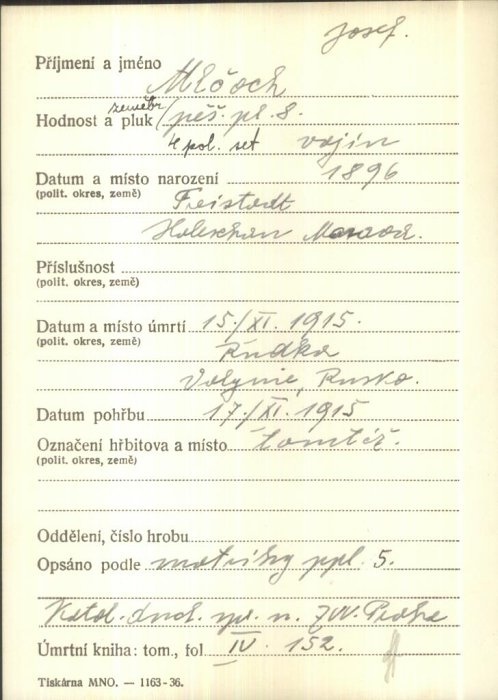 Josef.
Příjmení a jméno
Mlčoch
Hodnost a pluk zeměbr. pěš. pl. 8.
4 pol. set vojín
Datum a místo narození 1896
(polit. okres, země) Freistadt
Holleschau Morava.
Příslušnost
(polit. okres, země)
Datum a místo úmrtí 15./XI. 1915.
(polit. okres, země) Rudka
Volynie, Rusko.
Datum pohřbu 17./XI. 1915
Označení hřbitova a místo tamtéž.
(polit. okres, země)
Oddělení, číslo hrobu
Opsáno podle matriky ppl. 5.
Katol. duch. spr. n. ZVV. Praha
Úmrtní kniha: tom., fol IV. 152.
Tiskárna MNO. — 1163-36.